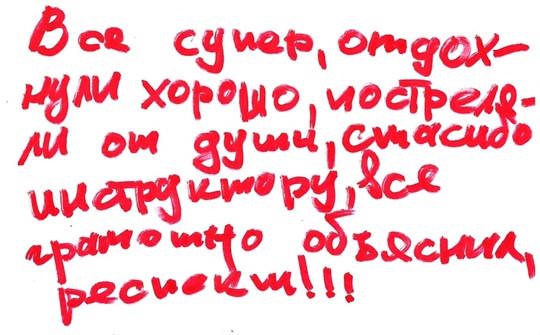 Все супер, отдох-
нули хорошо, постреля-
ли от души, спасибо
инструктору, все
грамотно объяснил,
респект!!!